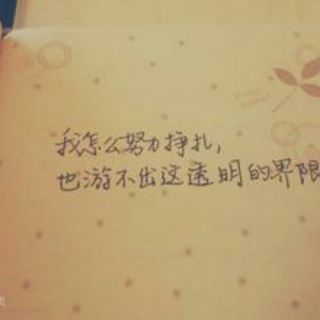 我怎么努力挣扎,
也游不出这透明的界限